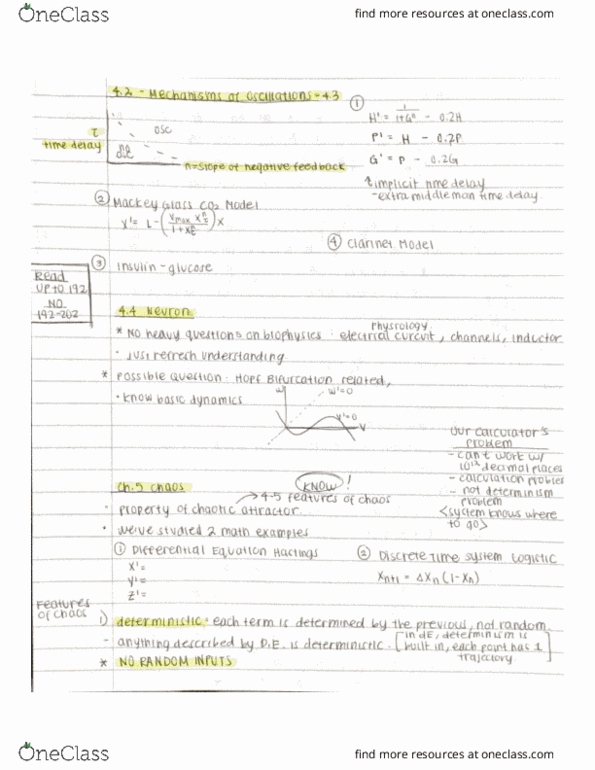 OneClass
find more resources at oneclass.com
4.2 - Mechanisms of Oscillations - 4.3
①
H' = 1/(1+Gⁿ) - 0.2H
τ
time delay
OSC
P' = H - 0.2P
G' = P - 0.2G
n=slope of negative feedback
implicit time delay
- extra middle man time delay
② Mackey Glass CO2 Model
④ Clarinet Model
③ Insulin - glucose
Read
UP to 192
NO
192-202
4.4 Neuron
physiology
* NO heavy questions on biophysics : electrical circuit, channels, inductor
· Just refresh understanding
* Possible question: HOPF Bifurcation related,
· know basic dynamics
W
W'=0
V'=0
V
our calculator's
problem
- can't work w/
decimal places
- calculation problem
- not determinism
problem
<system knows where
to go>
Ch.5 chaos
KNOW!
4-5 features of chaos
· property of chaotic attractor
· we've studied 2 math examples
① Differential Equation Hastings
② Discrete Time System Logistic
X'=
Y'=
Z'=
Features
of chaos
1) deterministic · each term is determined by the previous, not random.
- anything described by D.E. is deterministic. [in dE, determinism is
built in, each point has 1
trajectory.]
* NO RANDOM INPUTS
OneClass
find more resources at oneclass.com